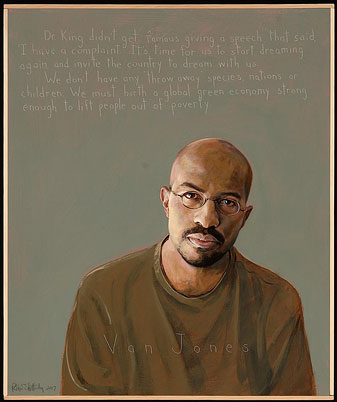 Dr King didn't get famous giving a speech that said
I have a complaint. It's time for us to start dreaming
again and invite the country to dream with us.
We don't have any throw away species, nations or
children. We must birth a global green economy strong
enough to lift people out of poverty.
Van Jones
2009